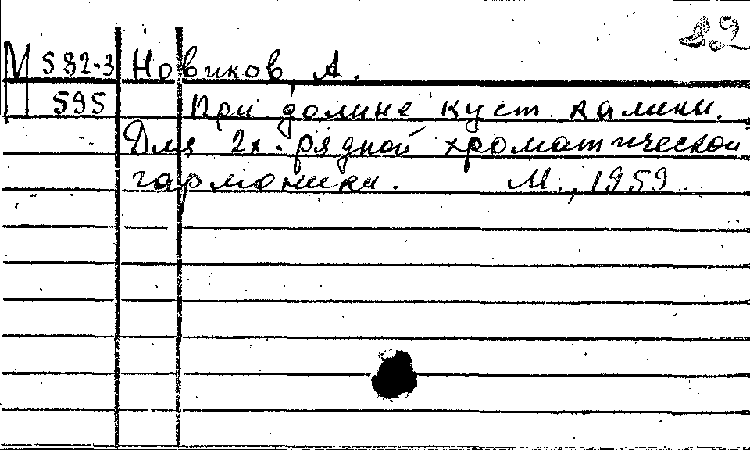 М 582-3 Новиков, А.
П 595 При долине куст калины.
Для 2х-рядной хроматической
гармоники. М., 1959